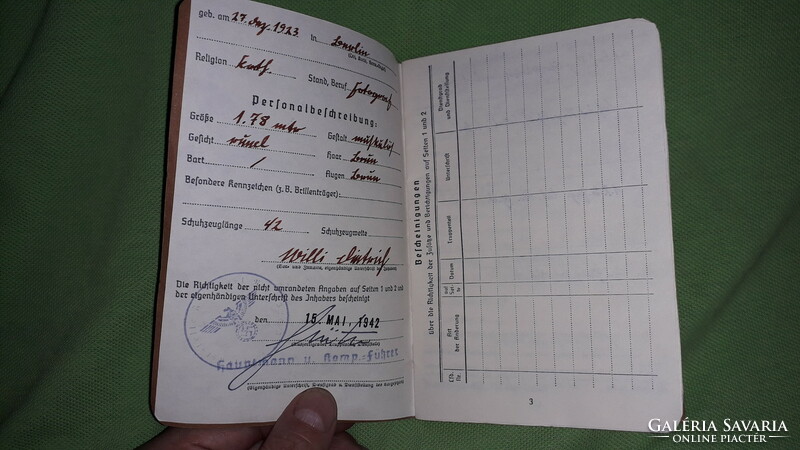 geb. am 27. Dez. 1923 in Berlin
(Ort, Kreis, Verw.-Bezirk)
Religion kath. Stand, Beruf Fotograf
Personalbeschreibung:
Größe 1.78 mtr Gestalt muskulös
Gesicht Haar Brün
Bart / Augen Brün
Besondere Kennzeichen (z. B. Brillenträger):
Schuhzeuglänge 42 Schuhzeugweite
Willi Dietrich
(Vor- und Zuname, eigenhändige Unterschrift des Inhabers)
Die Richtigkeit der nicht umrandeten Angaben auf Seiten 1 und 2 und
der eigenhändigen Unterschrift des Inhabers bescheinigt
den 15. MAI. 1942
Hauptmann u. Komp.-Führer
(Eigenhändige Unterschrift, Dienstgrad u. Dienststellung des Vorgesetzten)
Bescheinigungen
über die Richtigkeit der Zusätze und Berichtigungen auf Seiten 1 und 2
Lfd. Nr.
Art der Änderung
auf Seite
Datum
Truppenteil
Unterschrift
Dienstgrad und Dienststellung
3
GALÉRIA SAVARIA
ONLINE PIACTÉR